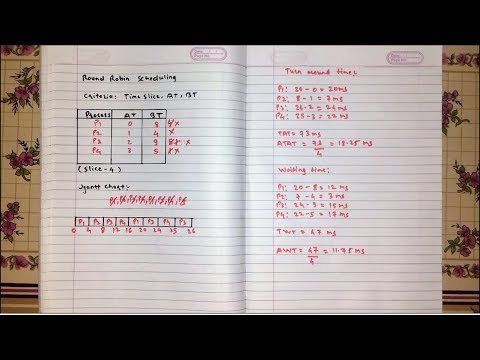 Round Robin Scheduling
Criteria: Time slice, AT, BT
Process AT BT
P1 0 8
P2 1 4
P3 2 9
P4 3 5
(slice - 4)
Gantt chart:
P1 P2 P3 P4 P1 P3 P4 P3
0 4 8 12 16 20 24 25 26
Turn around time:
P1: 20 - 0 = 20ms
P2: 8 - 1 = 7ms
P3: 26 - 2 = 24ms
P4: 25 - 3 = 22ms
TAT = 73 ms
ATAT = 73/4 = 18.25 ms
Waiting time:
P1: 20 - 8 = 12 ms
P2: 7 - 4 = 3 ms
P3: 24 - 9 = 15 ms
P4: 22 - 5 = 17 ms
TWT = 47 ms
AWT = 47/4 = 11.75 ms